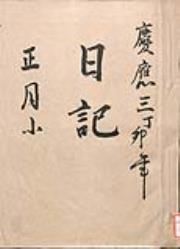 慶應三丁卯年
日記
正月小